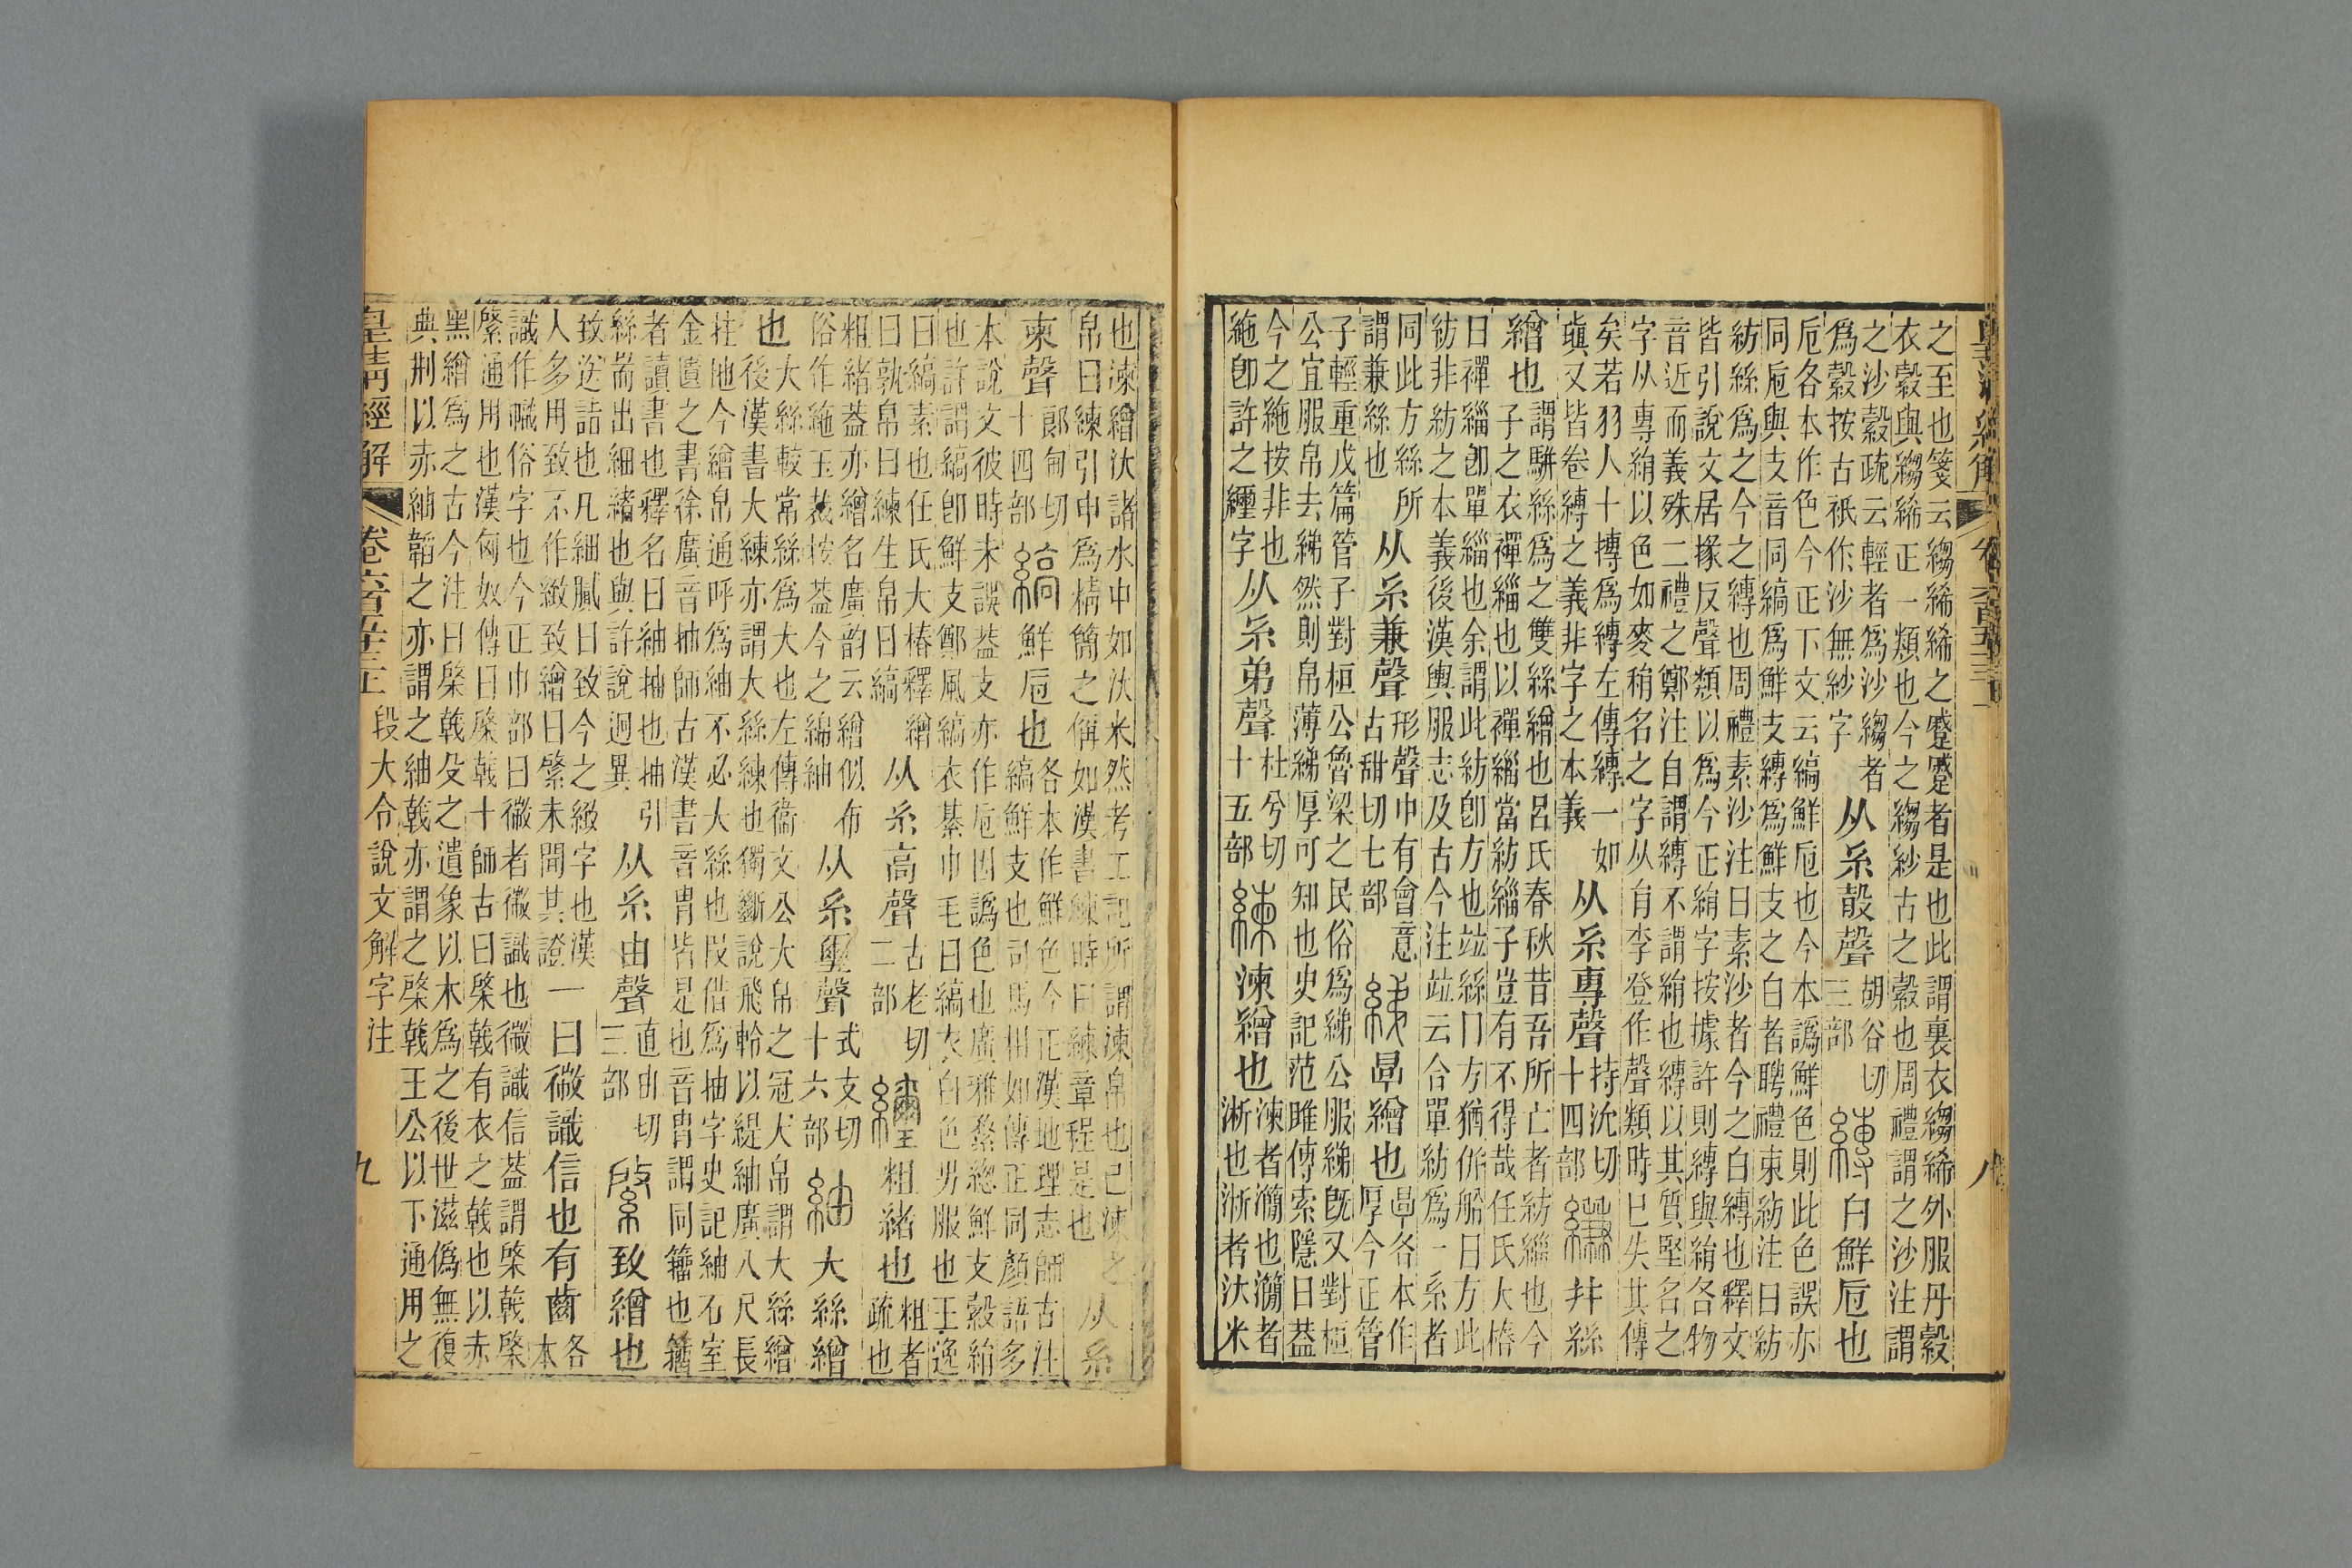 之至也箋云縐絺絺之蹙蹙者是也此謂裏衣縐絺外服丹縠
衣縠與縐絺正一類也今之縐紗古之縠也周禮謂之沙注謂
之沙縠疏云輕者爲沙縐者
爲縠按古祇作沙無紗字
从糸㱿聲
胡谷切
三部
縳白鮮卮也
卮各本作色今正下文云縞鮮卮也今本譌鮮色則此色誤亦
同卮與支音同縞爲鮮支縳爲鮮支之白者聘禮束紡注曰紡
紡絲爲之今之縳也周禮素沙注曰素沙者今之白縳也釋文
皆引說文居掾反聲類以爲今正絹字按據許則縳與絹各物
音近而義殊二禮之鄭注自謂縳不謂絹也縳以其質堅名之
字从專絹以色如麥稍名之字从肙李登作聲類時已失其傳
矣若羽人十摶爲縳左傳縳一如
瑱又皆卷縳之義非字之本義
从糸專聲
持沇切
十四部
縑幷絲
繒也
謂騈絲爲之雙絲繒也呂氏春秋昔吾所亡者紡緇也今
子之衣禪緇也以禪緇當紡緇子豈有不得哉任氏大椿
曰禪緇卽單緇也余謂此紡卽方也竝絲曰方猶倂船曰方此
紡非紡之本義後漢輿服志及古今注竝云合單紡爲一系者
同此方絲所
謂兼絲也
从糸兼聲
形聲中有會意
古甜切七部
綈㫗繒也
㫗各本作
厚今正管
子輕重戊篇管子對桓公魯梁之民俗爲綈公服綈旣又對桓
公宜服帛去綈然則帛薄綈厚可知也史記范雎傳索隱曰蓋
今之絁按非也
絁卽許之纚字
从糸弟聲
杜兮切
十五部
練湅繒也
湅者㶕也㶕者
淅也淅者汏米
皇清經解 卷六百五十三 八
也湅繒汏諸水中如汏米然考工記所謂湅帛也已湅之
帛曰練引申爲精簡之偁如漢書練時日練章程是也
从糸
柬聲
郞甸切
十四部
縞鮮卮也
各本作鮮色今正漢地理志師古注
縞鮮支也司馬相如傳正同顏語多
本說文彼時未誤蓋支亦作卮因譌色也廣雅緫鮮支縠絹
也許謂縞卽鮮支鄭風縞衣綦巾毛曰縞衣白色男服也王逸
曰縞素也任氏大椿釋繒
曰孰帛曰練生帛曰縞
从糸高聲
古老切
二部
粗緒也
粗者
疏也
粗緒蓋亦繒名廣韵云繒似布
俗作絁玉裁按蓋今之綿紬
从糸璽聲
式支切
十六部
紬大絲繒
也
大絲較常絲爲大也左傳衞文公大帛之冠大帛謂大絲繒
後漢書大練亦謂大絲練也獨斷說飛軨以緹紬廣八尺長
拄地今繒帛通呼爲紬不必大絲也叚借爲抽字史記紬石室
金匱之書徐廣音抽師古漢書音胄皆是也音胄謂同籒也籒
者讀書也釋名曰紬抽也抽引
絲耑出細緒也與許說迥異
从糸由聲
直由切
三部
綮致繒也
致送詣也凡細膩曰致今之緻字也漢
人多用致不作緻致繒曰綮未聞其證
一曰微識信也有齒
各
本
識作幟俗字也今正巾部曰微者微識也微識信蓋謂棨戟棨
綮通用也漢匈奴傳曰棨戟十師古曰棨戟有衣之戟也以赤
黑繒爲之古今注曰棨戟殳之遺象以木爲之後世滋僞無復
典刑以赤紬韜之亦謂之紬戟亦謂之棨戟王公以下通用之
皇清經解 卷六百五十三 段大令說文解字注 九